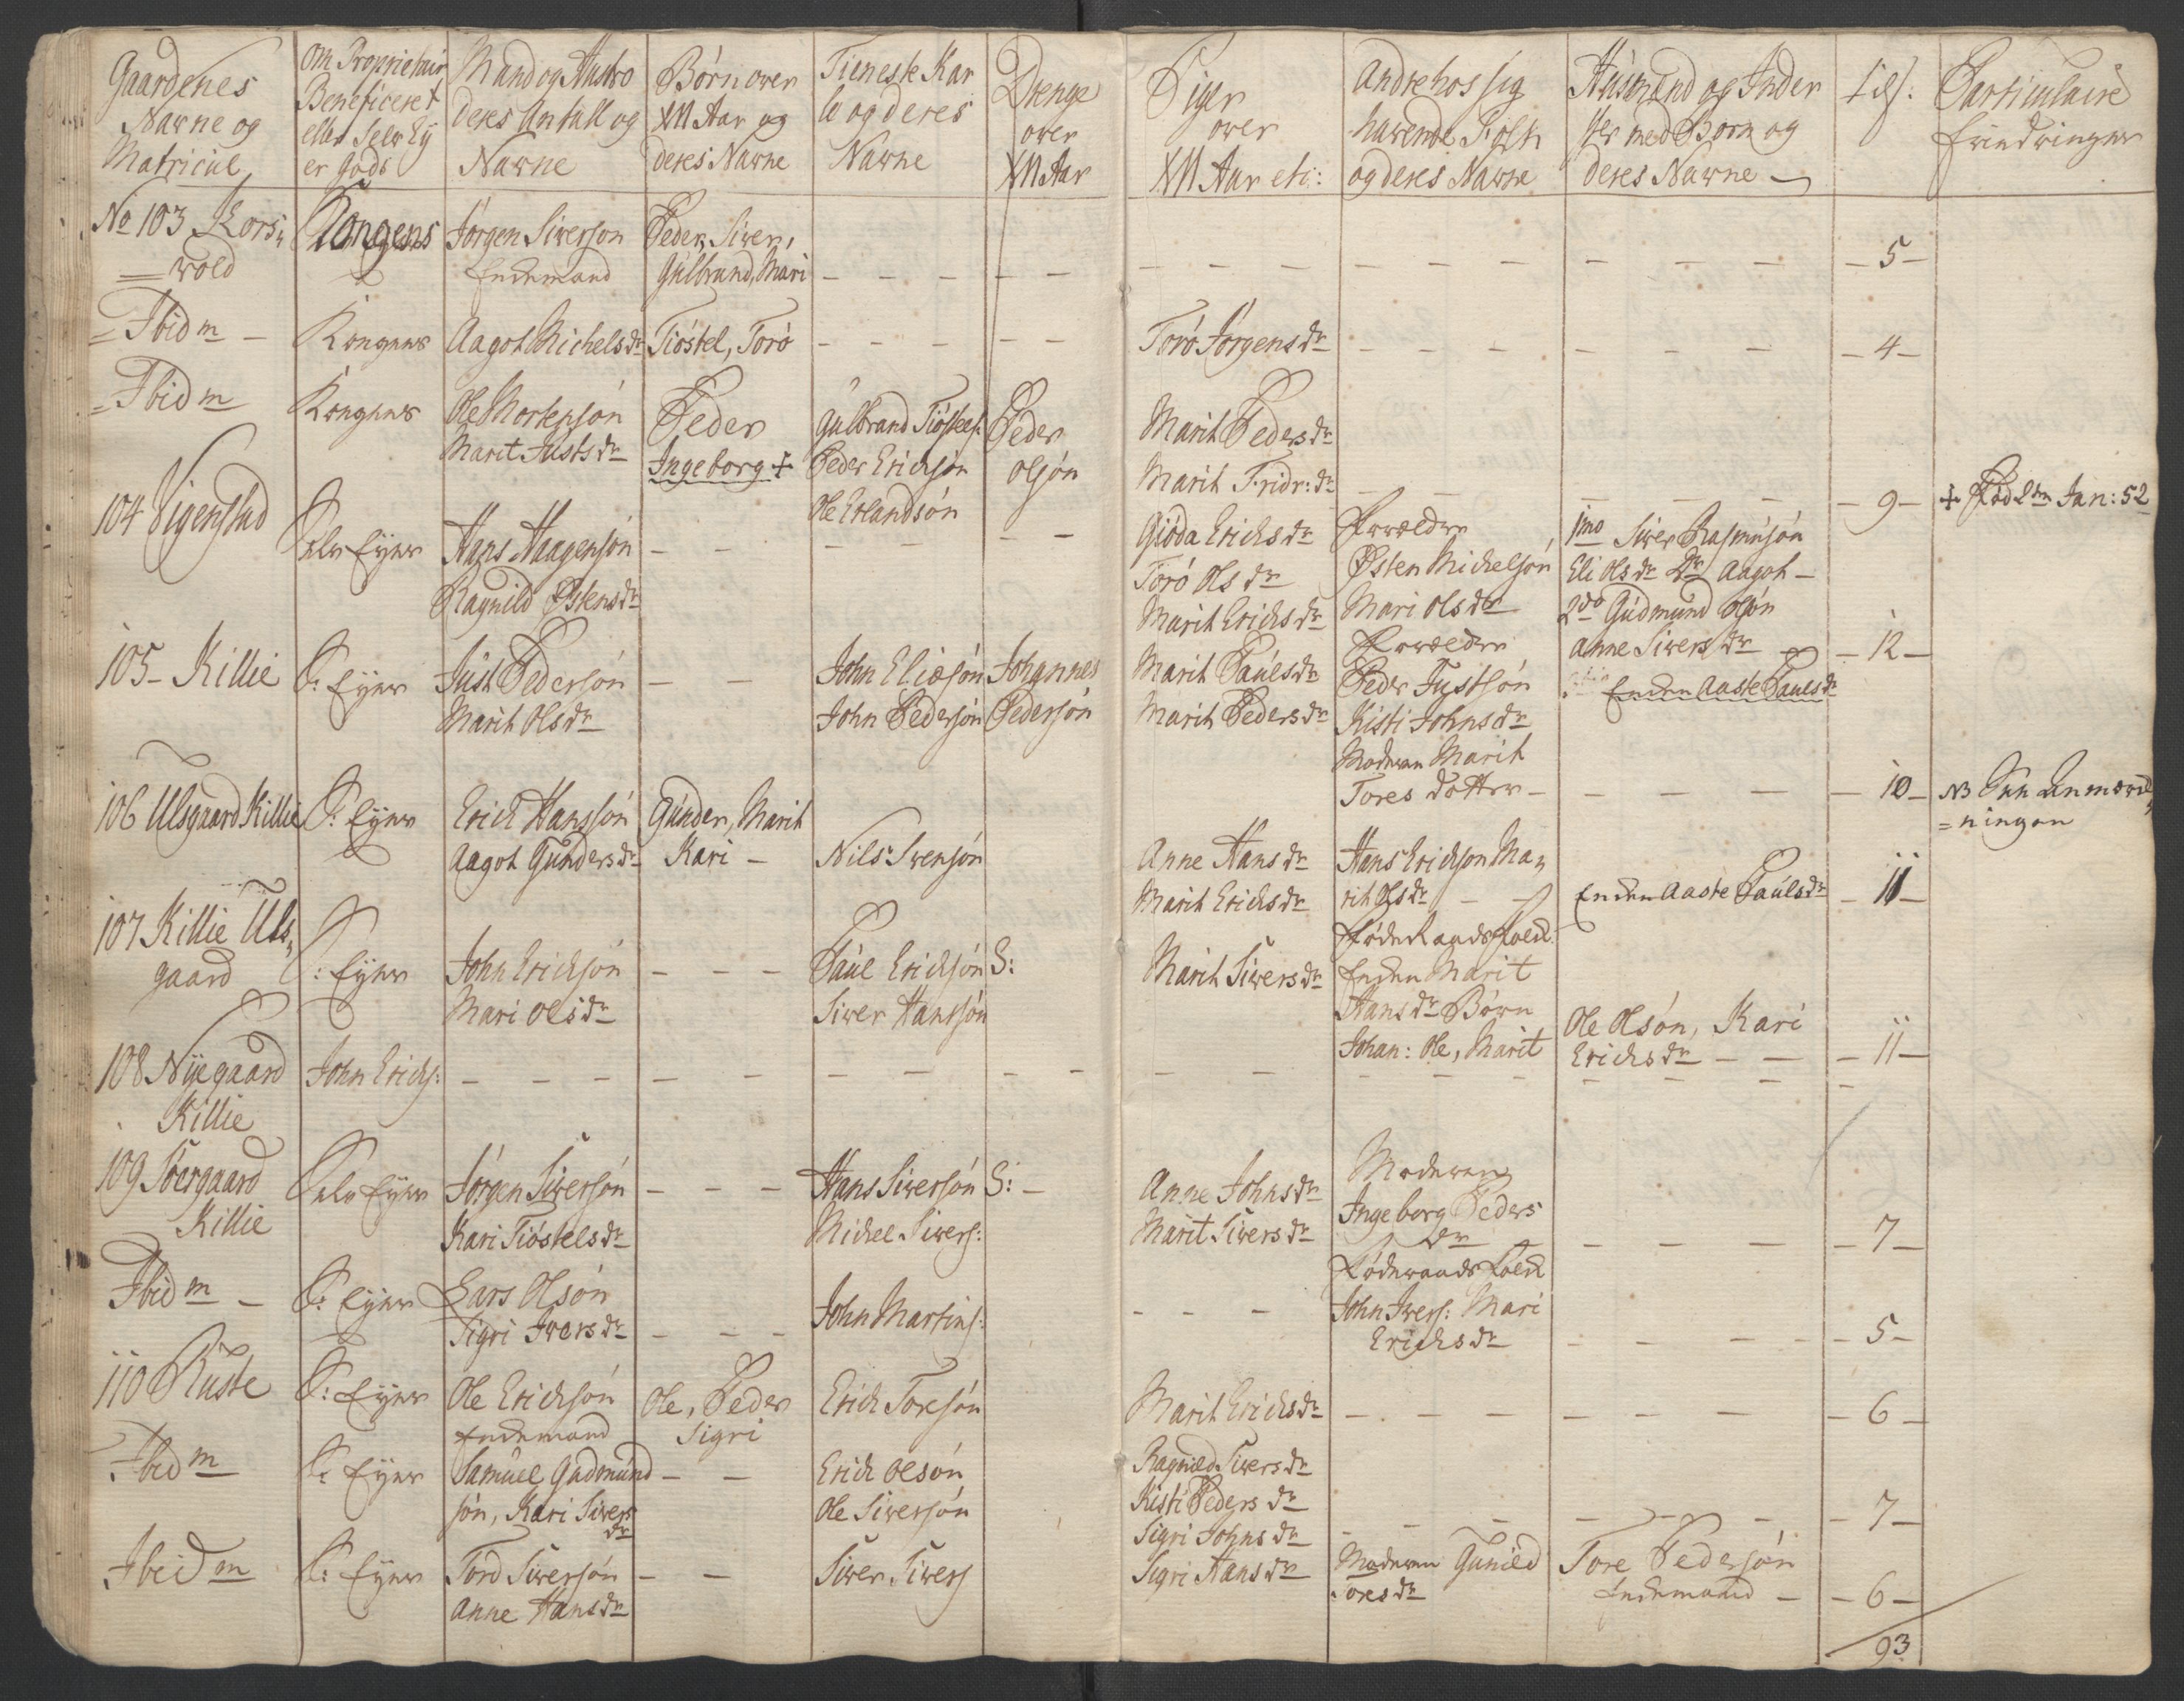 Gaardenes
Nawne og
Matricul
Om Proprietair
Beneficeret
eller Selw Ey
er Gods
Mand og Hustro
deres Antall og
Nawne
Børn over
XII Aar og
deres Nawne
Tieneste Kar
le og deres
Nawne
Drenge
over
XII Aar
Piger
over
XII Aar etc:
Andre hos sig
havende Folk
og deres Nawne
Husmænd og Inder
ster med Børn og
deres Nawne
Particulaire
No 103 Kors,
= wold
Kongens
Jørgen Siwerson
Enckemand
Peder, Siwer,
Gulbrand, Mari
- 5 -
= Ibid m -
Kongens
Aagot Michels dr
Tiøstel, Torø
Torø Jørgens dr
- 4 -
= Ibid m
Kongens
Ole Mortensøn
Marit Justs dr
Peder
Ingeborg +
Gulbrand Tiøstels:
Peder Ericksøn
Ole Erlandsøn
Peder
Olsøn
Marit Peders dr
Marit Fridr: dr
- 9 -
+ Død 2den Jan: 52
104 Sigenstad
Selv Eyer
Hans Haagensøn
Ragnild Østens dr
Giøda Erichs dr
Torø Ols dr
Marit Erichs dr
Forældre
Østen Michelsøn
Mari Ols dr
1mo Siwer Rasmusøn
Eli Ols dr Dr Aagot -
2do Gudmund Olsøn
Anne Siwers dr
- 12 -
105 - Killie
S: Eyer
Just Pedersøn
Marit Ols dr
John Eliæsøn
John Pedersøn
Johannes
Pedersøn
Marit Pauls dr
Marit Peders dr
Forældre
Peder Justsøn
Kisti Johns dr
Moderen Marit
Tores Datter -
Encken Aaste Pauls dr
- 10 -
NB
= ningen
106 Ulsgaard Killie
S: Eyer
Erich Hanssøn
Aagot Gunders dr
Gunder, Marit
Kari -
Nils Swensøn
Anne Hans dr
Marit Erichs dr
Hans Erichson Ma,
rit Ols dr
Encken Aaste Pauls dr
- 11 -
107 Killie Uls,
gaard
S: Eyer
John Ericksøn
Mari Ols dr
Paul Ericksøn
Siwer Hanssøn
S:
Marit Siwers dr
Føderaads Folck
Encken Marit
Hans dr Børn
Johan: Ole, Marit
Ole Olsøn, Kari
Erichs dr
- 11 -
108 Nyegaard
Killie
John Erichs:
109 Søergaard
Killie
Selv Eyer
Jørgen Siwersøn
Kari Tiøstels dr
Hans Siwersøn
Michel Siwers:
S: -
Anne Johns dr
Marit Siwers dr
Moderen
Ingeborg Peders
Dr
- 7 -
Ibid m -
S: Eyer
Lars Olsøn
Sigri Iwers dr
John Martins:
Føderaads Folck
John Iwers: Mari
Erichs dr
- 5 -
110 Ruste
S: Eyer
Ole Ericksøn
Enckemand
Ole, Peder
Sigri
Erich Toresøn
Marit Erichs dr
- 6 -
Ibid m
S: Eyer
Samuel Gudmund
søn, Kari Siwers
dr
Erich Olsøn
Ole Siwersøn
Ragnild Siwers dr
Kisti Peders dr
Sigri Johns dr
- 7 -
Ibid m
S: Eyer
Tord Siwersøn
Anne Hans dr
Siwer Siwers
Sigri Hans dr
Moderen Gunild
Tores dr
Tore Pedersøn
Enckemand -
- 6 -
93